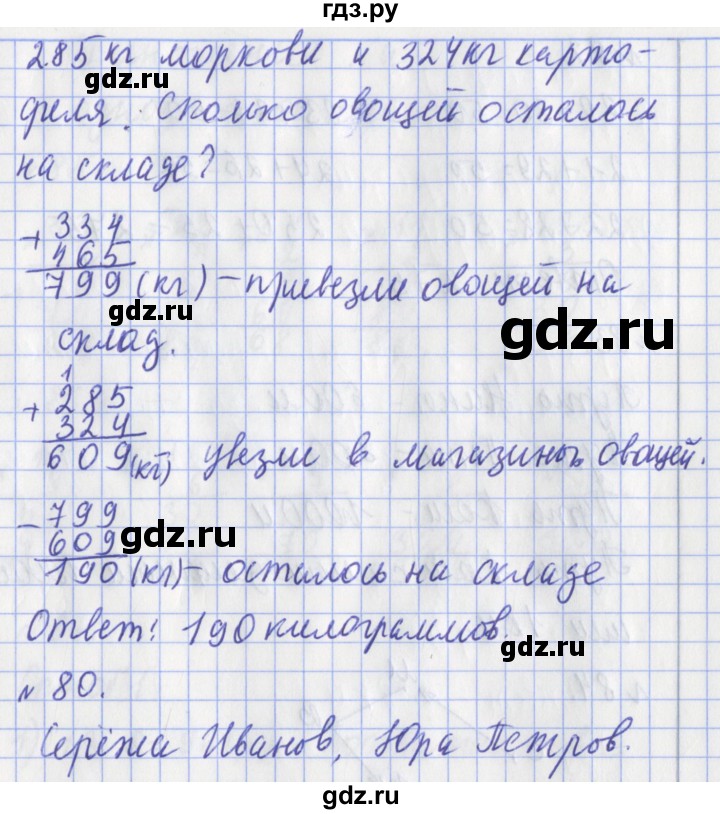 гдз.ру
285 кг моркови и 324 кг карто-
gdz.ru
феля. Сколько овощей осталось
на складе?
gdz.ru
+ 334
465
799 (кг) - привезли овощей на
gdz.ru
склад.
gdz.ru
1
+ 285
324
609 (кг) увезли в магазины овощей.
gdz.ru
- 799
609
gdz.ru
190 (кг) - осталось на складе
Ответ: 190 килограммов.
gdz.ru
№ 80.
Серёжа Иванов, Юра Петров.
gdz.ru
gdz.ru